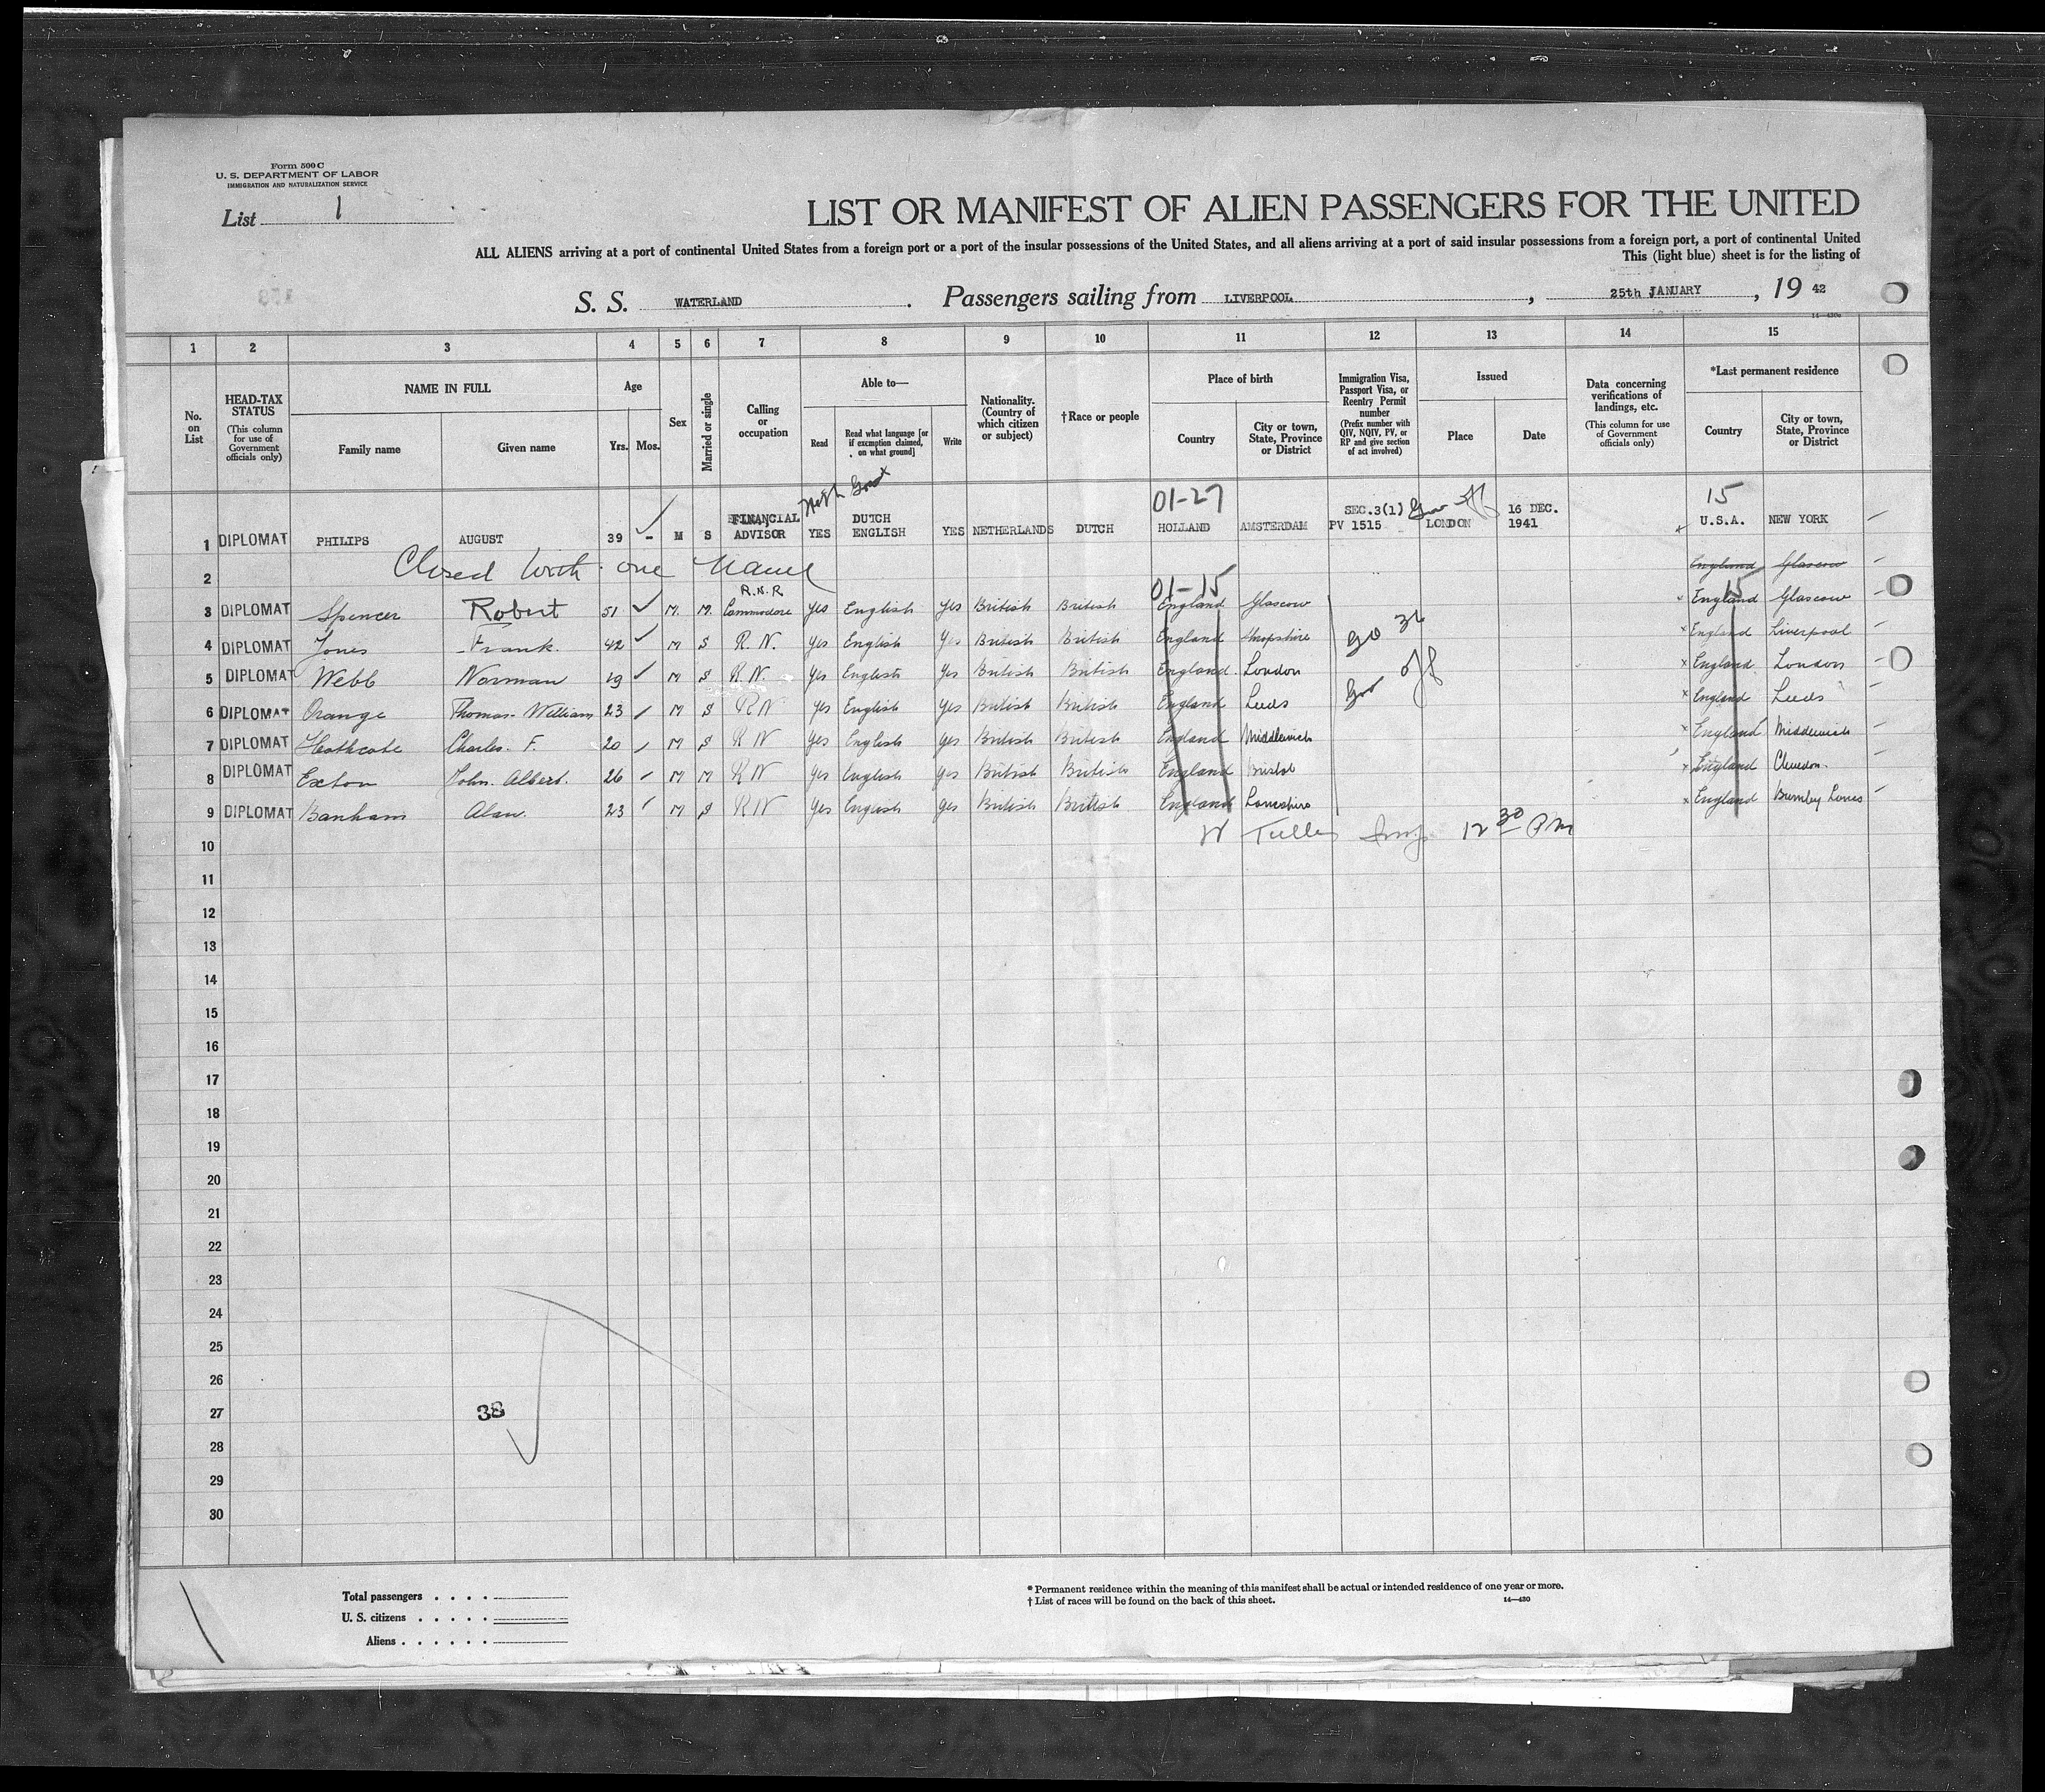 Form 500 C
U. S. DEPARTMENT OF LABOR
IMMIGRATION AND NATURALIZATION SERVICE
List 1
LIST OR MANIFEST OF ALIEN PASSENGERS FOR THE UNITED
ALL ALIENS arriving at a port of continental United States from a foreign port or a port of the insular possessions of the United States, and all aliens arriving at a port of said insular possessions from a foreign port, a port of continental United
This (light blue) sheet is for the listing of
S. S. WATERLAND . Passengers sailing from LIVERPOOL , 25th JANUARY , 19 42
14—430
1 2 3 4 5 6 7 8 9 10 11 12 13 14 15
No. on List
HEAD-TAX STATUS (This column for use of Government officials only)
NAME IN FULL
Family name Given name
Age
Yrs. Mos.
Sex
Married or single
Calling or occupation
Able to—
Read Read what language [or if exemption claimed, on what ground] Write
Nationality. (Country of which citizen or subject)
†Race or people
Place of birth
Country City or town, State, Province or District
Immigration Visa, Passport Visa, or Reentry Permit number (Prefix number with QIV, NQIV, PV, or RP and give section of act involved)
Issued
Place Date
Data concerning verifications of landings, etc. (This column for use of Government officials only)
*Last permanent residence
Country City or town, State, Province or District
01-27 15
1 DIPLOMAT PHILIPS AUGUST 39 - M S FINANCIAL ADVISOR YES DUTCH ENGLISH YES NETHERLANDS DUTCH HOLLAND AMSTERDAM SEC.3(1) PV 1515 LONDON 16 DEC. 1941 U.S.A. NEW YORK
2 Closed with one name England Glascow
01-15 15
3 DIPLOMAT Spencer Robert 51 M. M. R.N.R Commodore yes English Yes British British England Glascow England Glascow
4 DIPLOMAT Jones Frank. 42 M S R. N. Yes English Yes British British England Shropshire England Liverpool
5 DIPLOMAT Webb Norman 19 M S R N. Yes English Yes British British England London England London
6 DIPLOMAT Orange Thomas William 23 M S RN yes English yes British British England Leeds England Leeds
7 DIPLOMAT Heathcote Charles. F. 20 M S RN Yes English yes British British England Middlewich England Middlewich
8 DIPLOMAT Exton John. Albert. 26 M M RN yes English yes British British England Bristol England Clevedon.
9 DIPLOMAT Banham Alan. 23 M S RN Yes English yes British British England Lancashire England Burnley Lancs
10 12 30 PM
11
12
13
14
15
16
17
18
19
20
21
22
23
24
25
26
27
38
28
29
30
Total passengers . . . .
U. S. citizens . . . . .
Aliens . . . . . .
* Permanent residence within the meaning of this manifest shall be actual or intended residence of one year or more.
† List of races will be found on the back of this sheet.
14—430